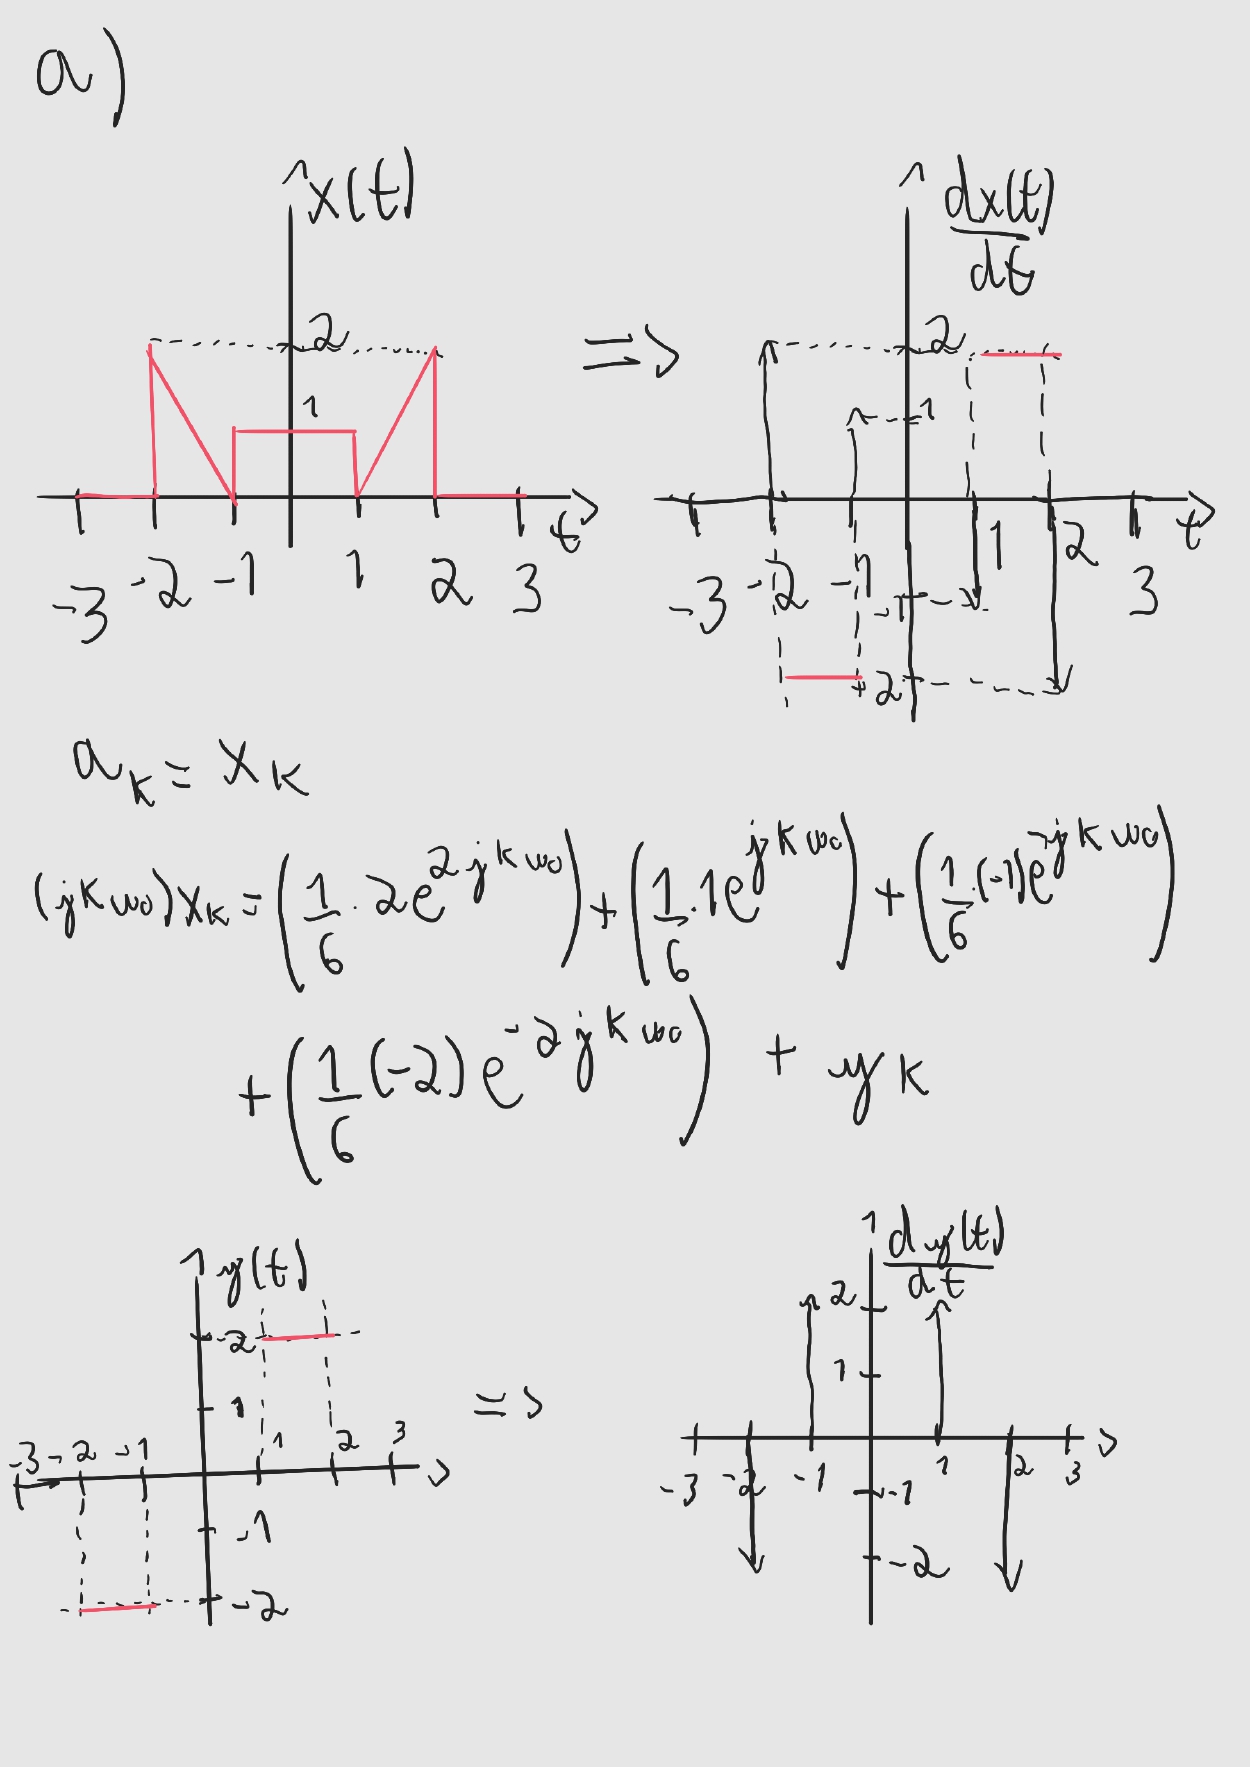 a)
x(t)
2
1
-3 -2 -1 1 2 3 t
=>
dx(t)/dt
2
1
-3 -2 -1 1 2 3 t
-1
-2
a_k = x_k
(jkw₀)x_k = (1/6 · 2e^{2jkw₀}) + (1/6 · 1e^{jkw₀}) + (1/6 · (-1)e^{-jkw₀})
+ (1/6 (-2) e^{-2jkw₀}) + y_k
y(t)
2
1
-3 -2 -1 1 2 3
-1
-2
=>
dy(t)/dt
2
1
-3 -2 -1 1 2 3
-1
-2